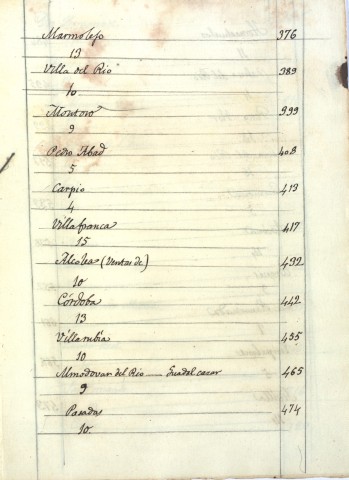 Marmolejo 376
13
Villa del Rio 389
10
Montoro 399
9
Pedro Abad 408
5
Carpio 413
4
Villafranca 417
15
Alcolea (Ventas de) 432
10
Córdoba 442
13
Villarrubia 455
10
Almodovar del Rio — Guadalcazar 465
9
Posadas 474
10